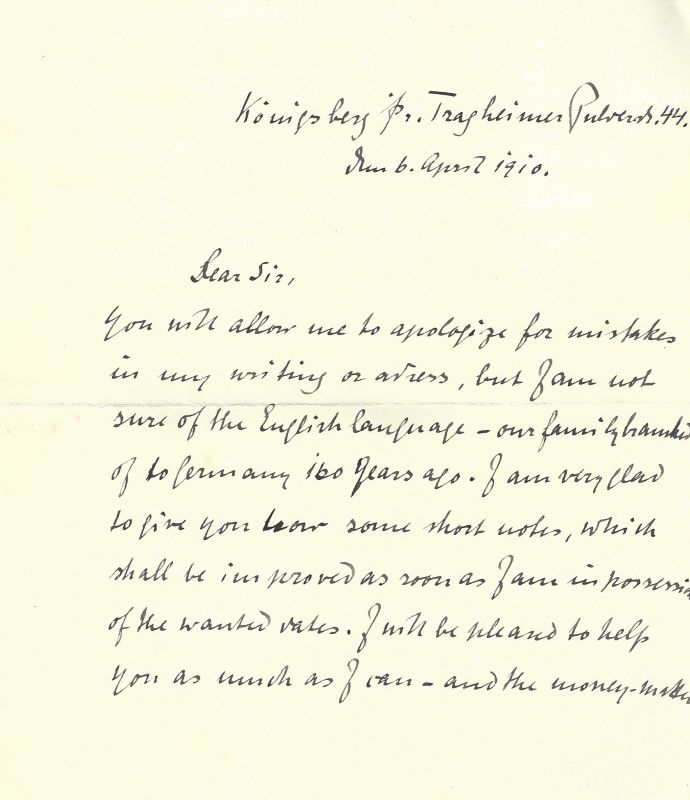 Königsberg i/Pr. Tragheimer Pulverstr. 44.
den 6. April 1910.
Dear Sir,
you will allow me to apologize for mistakes
in my writing or adress, but I am not
sure of the English language – our family branched
of to Germany 160 Years ago. I am very glad
to give you some short notes, which
shall be improved as soon as I am in possession
of the wanted dates. I will be pleased to help
you as much as I can – and the money-matter